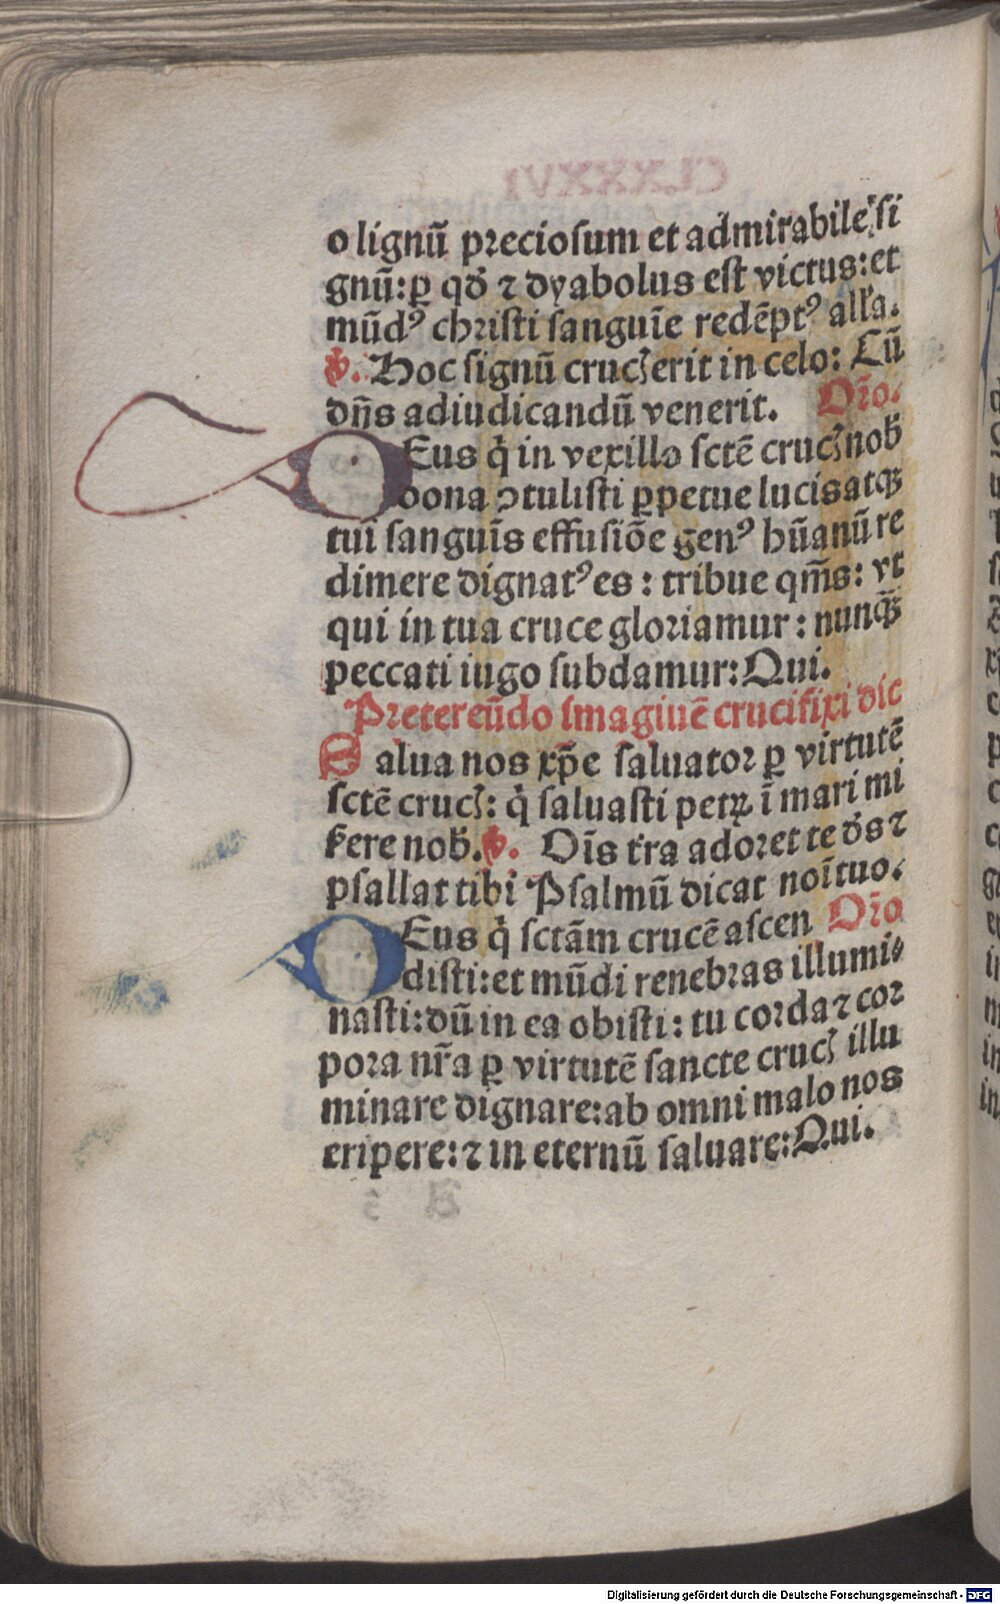 o lignū preciosum et admirabile si
gnū: ꝑ qđ ⁊ dyabolus est victus: et
mūdꝰ christi sanguīe redēptꝰ alľa.
℣. Hoc signū crucꝭ erit in celo: Cū
dn̄s adiudicandū venerit. Or̄o.
DEus q̇ in vexillo sctē crucꝭ nob̄
dona ↄtulisti ꝑpetue lucis atqꝫ
tui sanguīs effusiōe genꝰ hūanū re
dimere dignatꝰ es: tribue qm̄s: vt
qui in tua cruce gloriamur: nunqꝫ̄
peccati iugo subdamur: Qui.
Pretereūdo imagiuē crucifixi dic
Salua nos xp̄e saluator ꝑ virtutē
sctē crucꝭ: q̇ saluasti petꝝ ī mari mi
ẜere nob̄. ℣. Oīs ťra adoret te đs ⁊
psallat tibi Psalmū dicat noī tuo.
DEus q̇ sctām crucē ascen Or̄o
disti: et mūdi renebras illumi⸗
nasti: dū in ea obisti: tu corda ⁊ cor
pora nr̄a ꝑ virtutē sancte crucꝭ illu
minare dignare: ab omni malo nos
eripere: ⁊ in eternū saluare: Qui.
Digitalisierung gefördert durch die Deutsche Forschungsgemeinschaft - DFG